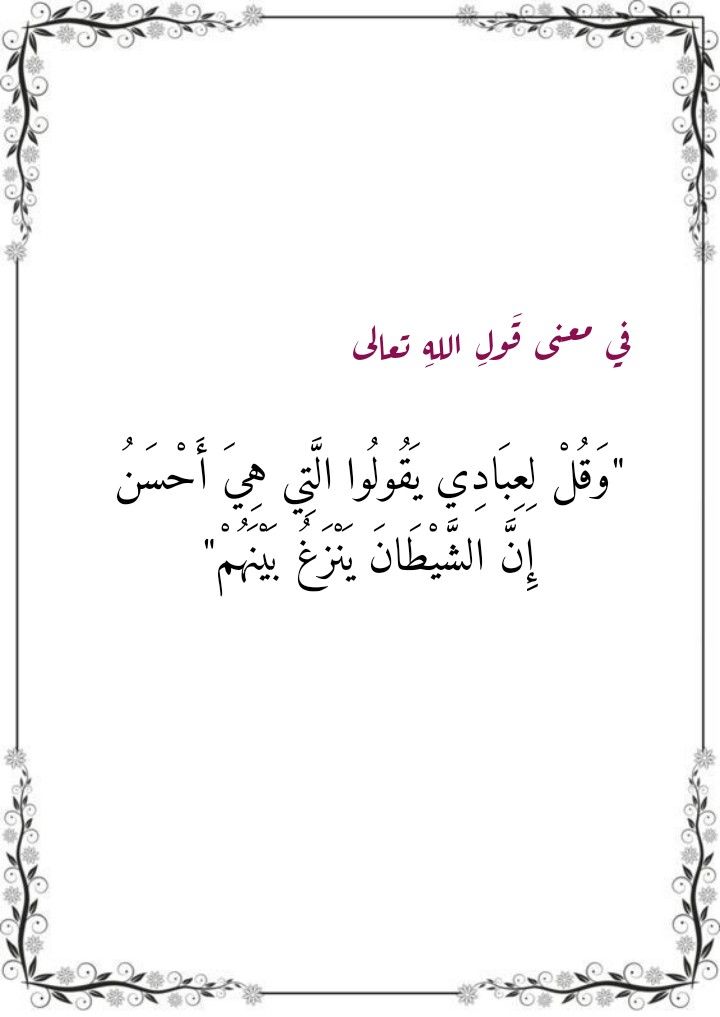 في معنى قَولِ اللهِ تعالى
"وَقُلْ لِعِبَادِي يَقُولُوا الَّتِي هِيَ أَحْسَنُ
إِنَّ الشَّيْطَانَ يَنْزَغُ بَيْنَهُمْ"